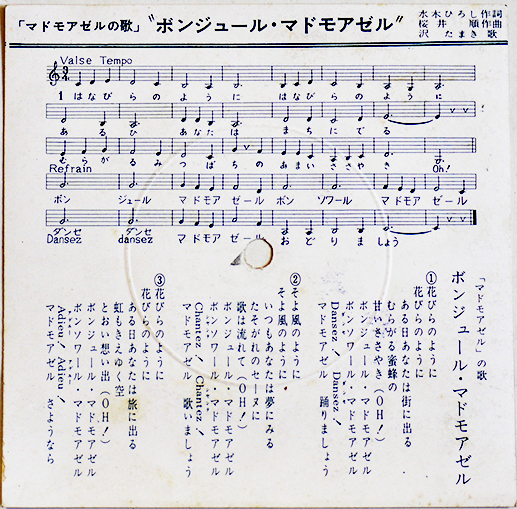 「マドモアゼルの歌」 "ボンジュール・マドモアゼル"
水木ひろし作詞
桜井順作曲
沢たまき歌
Valse Tempo
1 はなびらの ように はなびらの ように
あるひ あなたは まちにでる
むらがるみつばちの あまいささやき Oh!
Refrain
ボン ジュール マドモア ゼール ボン ソワール マドモア ゼール
ダンゼ ダンゼ マドモア ゼール おどりましょう
Dansez dansez
「マドモアゼル」の歌
ボンジュール・マドモアゼル
①花びらのように
花びらのように
ある日あなたは街に出る
むらがる蜜蜂の
甘いささやき(OH!)
ボンジュール・マドモアゼル
ボンソワール・マドモアゼル
Dansez! Dansez!
マドモアゼル 踊りましょう
②そよ風のように
そよ風のように
いつもあなたは夢にみる
たそがれのセーヌに
歌は流れて(OH!)
ボンジュール・マドモアゼル
ボンソワール・マドモアゼル
Chantez! Chantez!
マドモアゼル 歌いましょう
③花びらのように
花びらのように
ある日あなたは旅に出る
虹もきえゆく空
とおい想い出(OH!)
ボンジュール・マドモアゼル
ボンソワール・マドモアゼル
Adieu! Adieu!
マドモアゼル さようなら